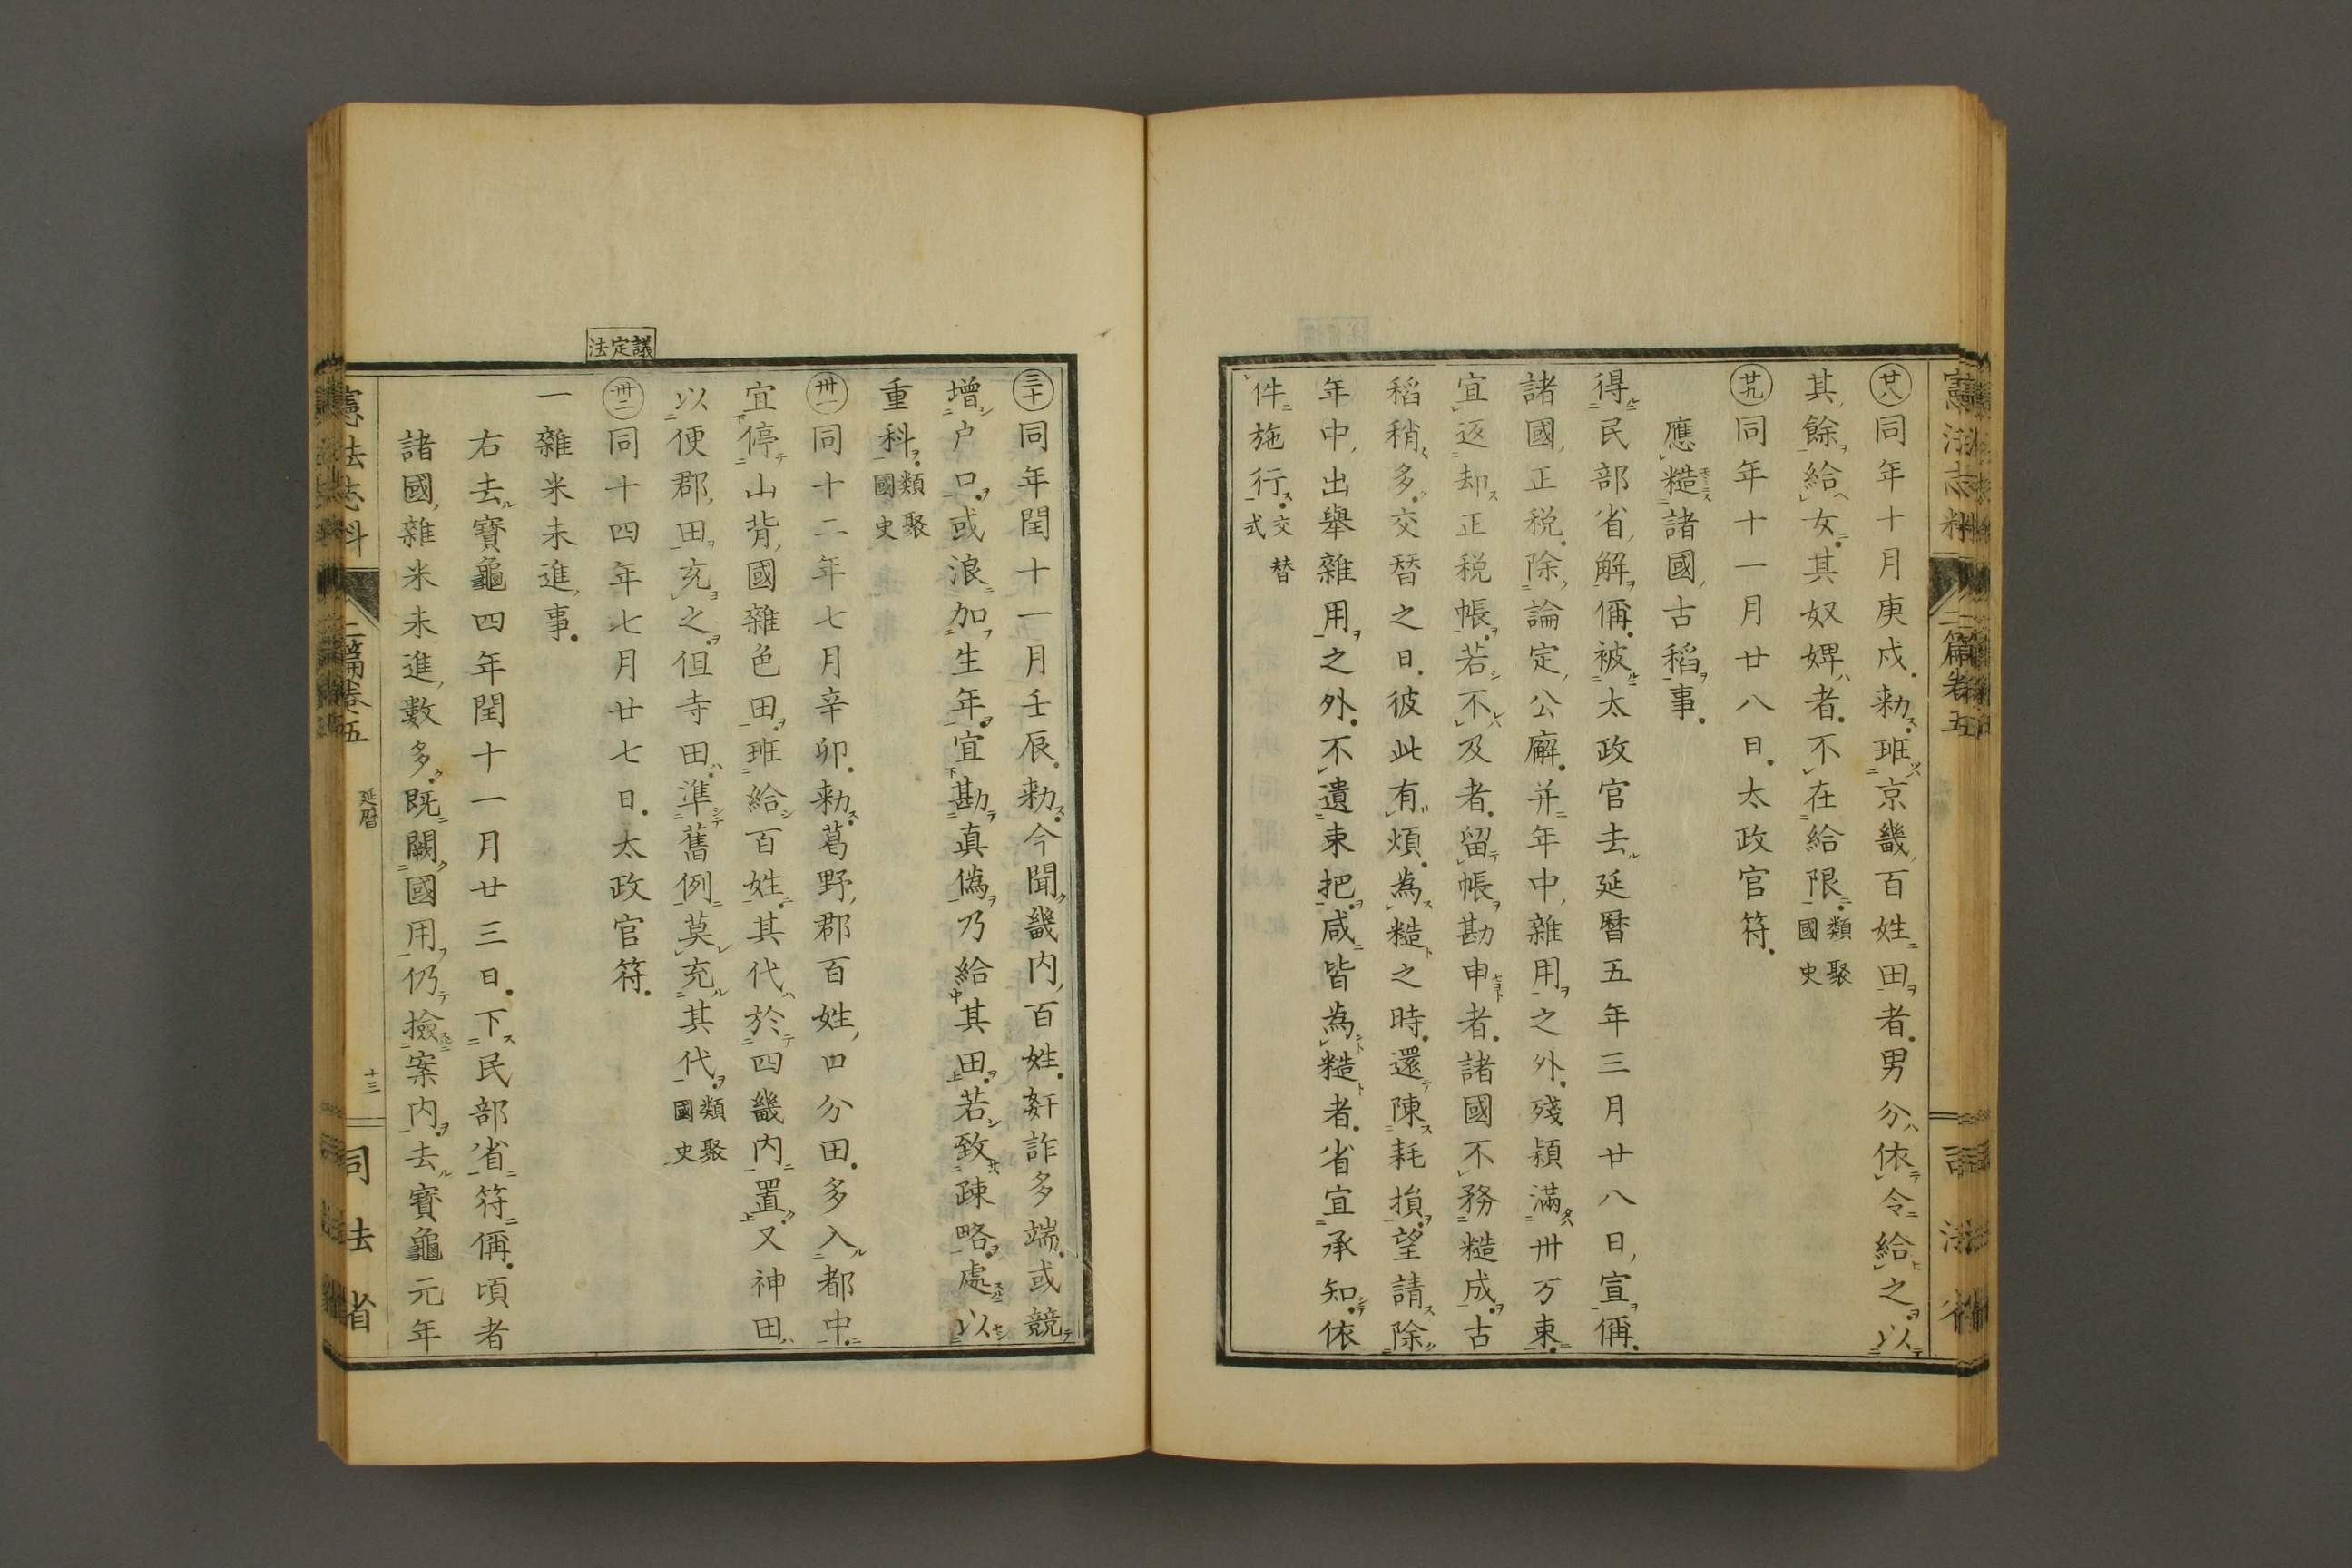 憲法志料
二篇卷五
司法省
廿八同年十月庚戍勅班京畿百姓田者男分依令給之以
其餘給女其奴婢者不在給限類聚國史
廿九同年十一月廿八日太政官符
應糙諸國古稻事
得民部省解偁被太政官去延曆五年三月廿八日宣偁
諸國正稅除論定公廨并年中雜用之外殘穎滿卅万束
宜返却正税帳若不及者留帳勘申者諸國不務糙成古
稻稍多交替之日彼此有煩為糙之時還陳耗損望請除
年中出舉雜用之外不遺束把咸皆為糙者省宜承知依
件施行交替式
三十同年閏十一月壬辰勅今聞畿内百姓奸詐多端或競
增户口或浪加生年宜勘真偽乃給其田若致疎略處以
重科類聚國史
卅一同十二年七月辛卯勅葛野郡百姓口分田多入都中
宜停山背國雜色田班給百姓其代於四畿内置又神田
以便郡田充之但寺田準舊例莫充其代類聚國史
議定法
卅二同十四年七月廿七日太政官符
一雜米未進事
右去寶龜四年閏十一月廿三日下民部省符偁頃者
諸國雜米未進數多既闕國用仍撿案内去寶龜元年
憲法志料
二篇卷五
延曆
十三
司法省